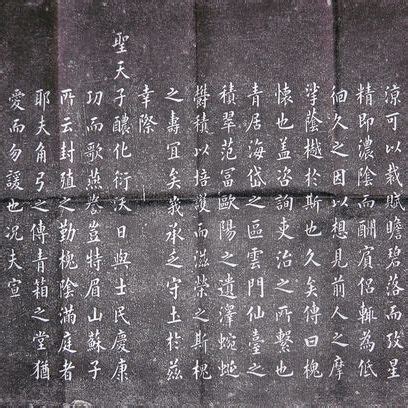 涼可以裁賦瞻碧落而孜星
精即濃陰而酬賓侶輒為低
徊久之因以想見前人之摩
挲蔭樾於斯也久矣傳曰槐
懷也盖咨詢吏治之所繫也
青居海岱之區雲門仙臺之
積翠范冨歐陽之遺澤蜿蜒
欝積以培護而滋榮之斯槐
之壽冝矣哉承乏守土於茲
幸際
聖天子醲化衍沃日與士民慶康
功而歌燕譽豈特眉山蘇子
所云封殖之勤槐陰滿庭者
耶夫角弓之傳青箱之堂猶
愛而勿諼也况夫宣